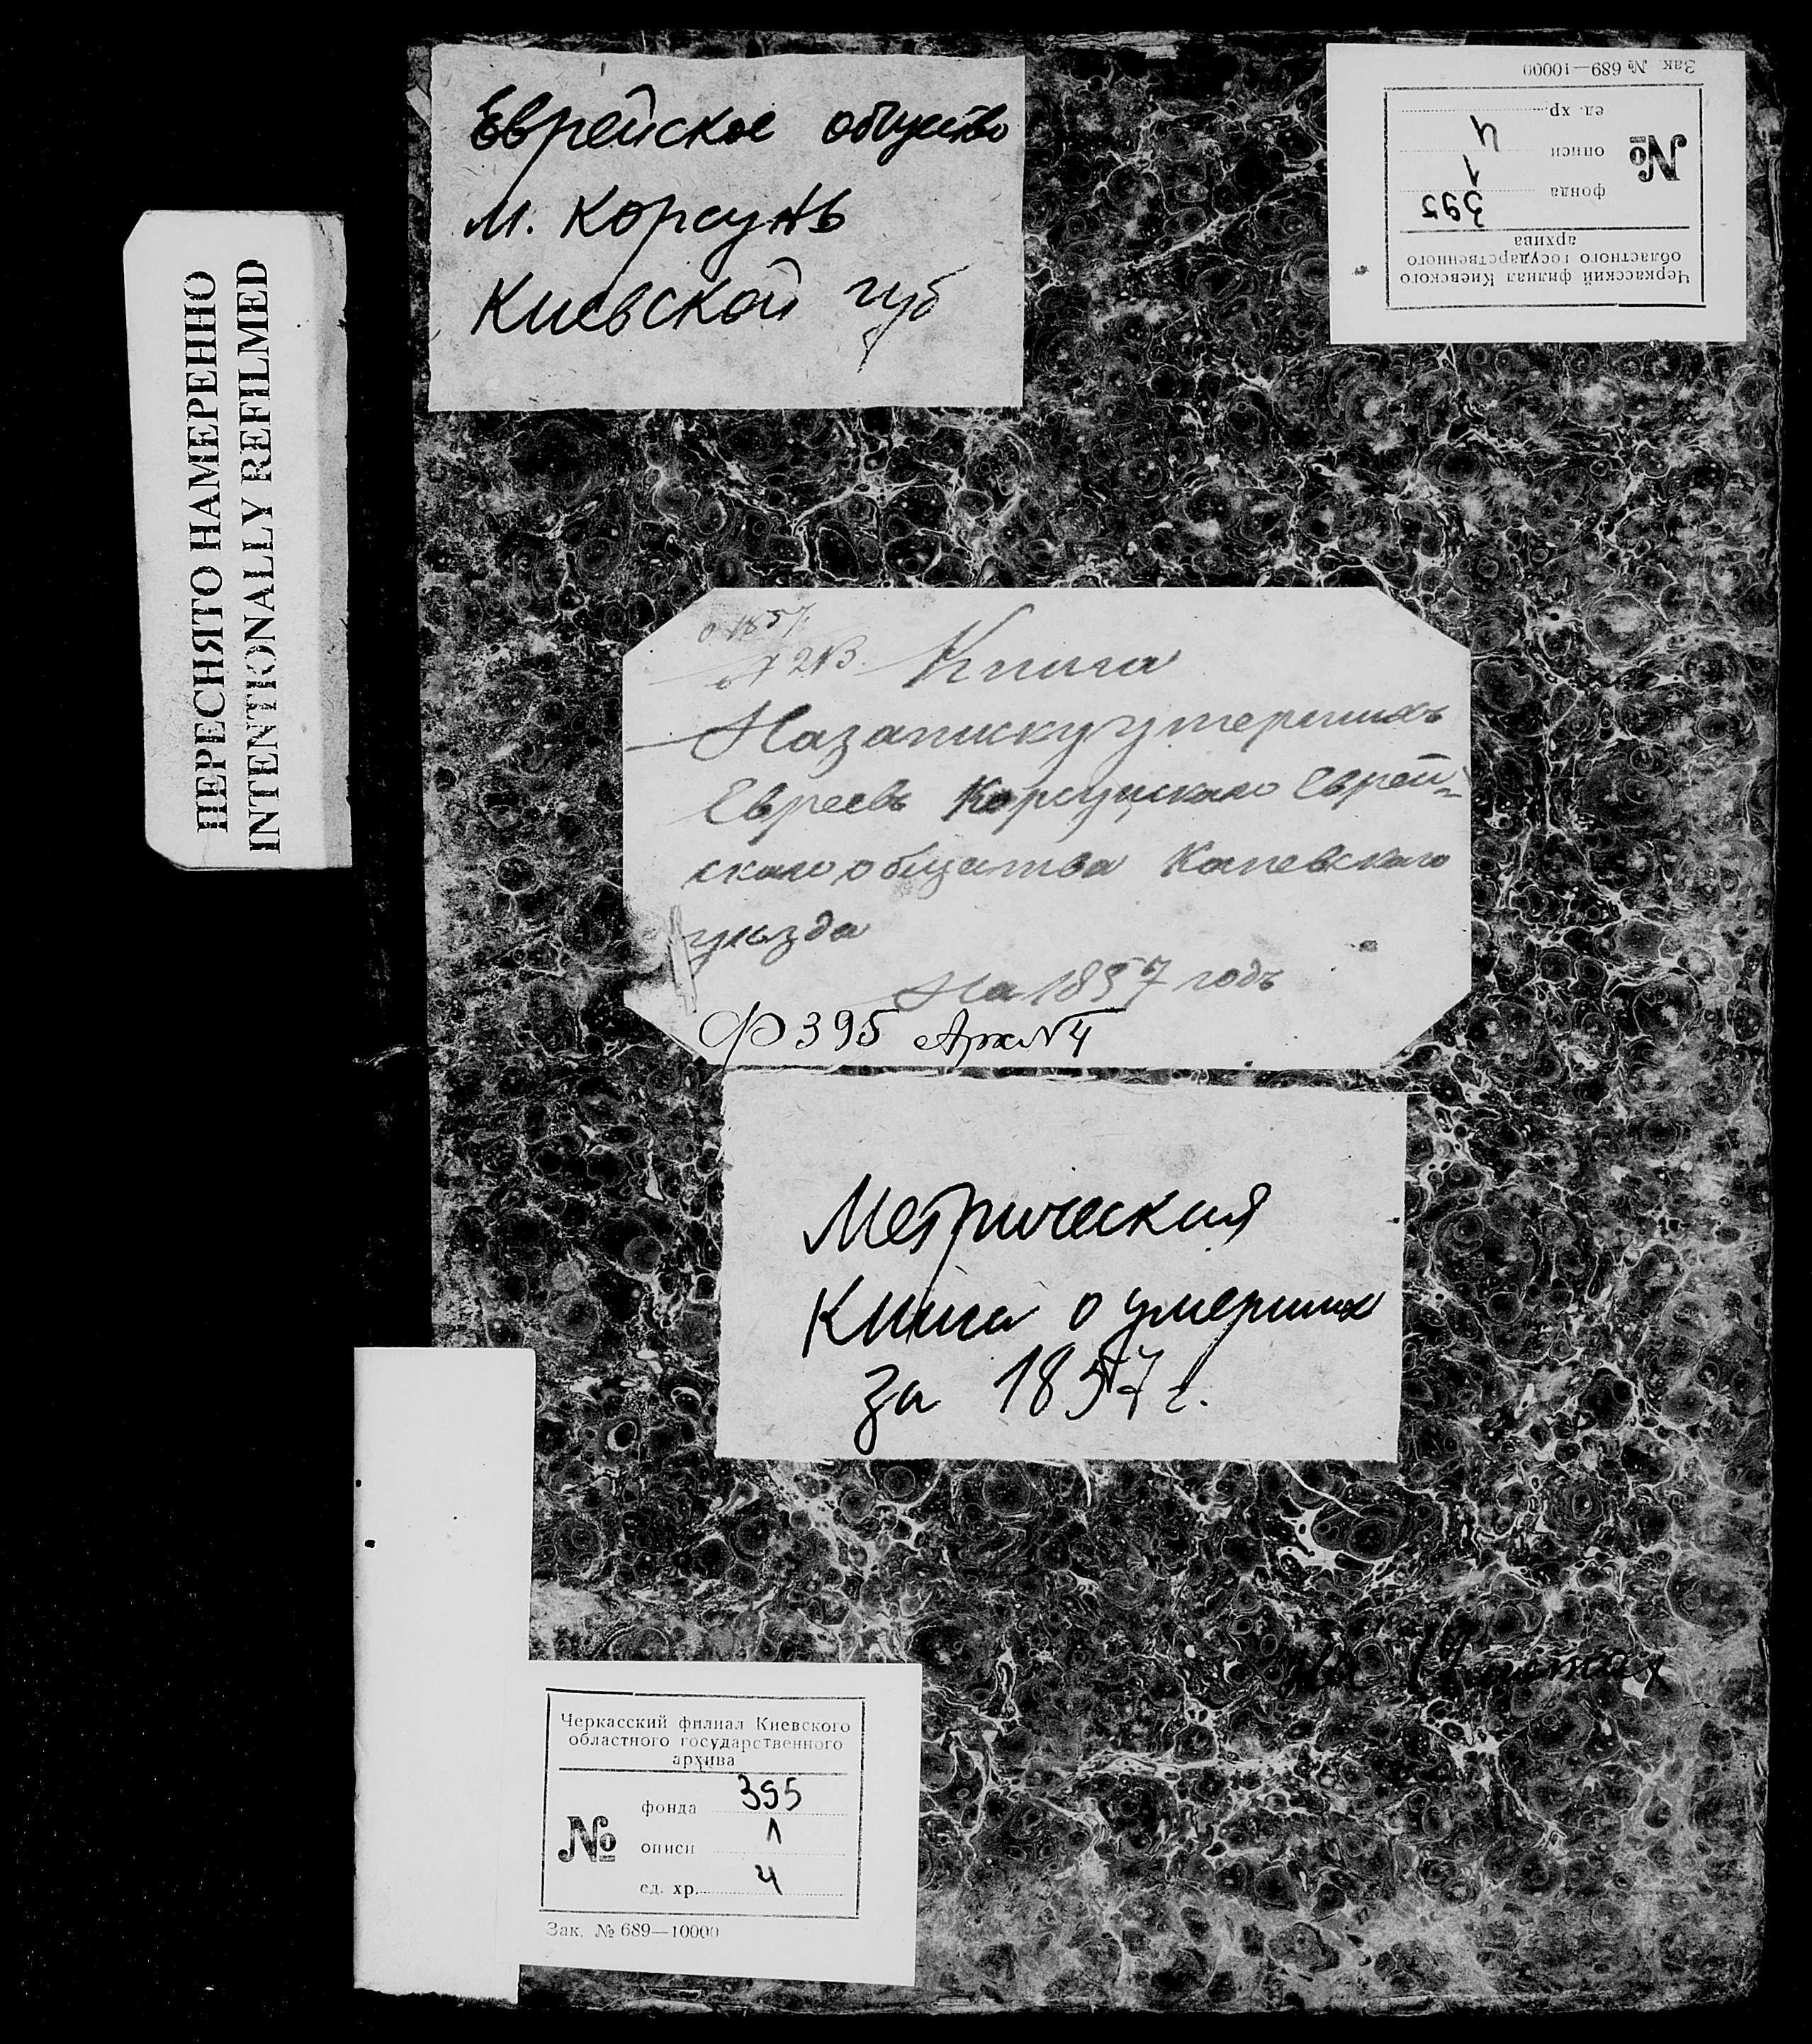 Еврейское общество
м. Корсунь
Киевской губ
Зак № 689—10000
Черкасский филиал Киевского
областного государственного
архива
№
фонда 395
описи 1
ед. хр. 4
ПЕРЕСНЯТО НАМЕРЕННО
INTENTIONALLY REFILMED
1857
Книга
На записку умершихъ
Евреевъ Корсунскаго Еврей=
скаго общества Каневскаго
уѣзда
На 1857 годъ
Ф 395 Арх № 4
Метрическая
Книга о умерших
за 1857 г.
на листах
Черкасский филиал Киевского
областного государственного
архива
№
фонда 395
описи 1
ед. хр. 4
Зак. № 689—10000